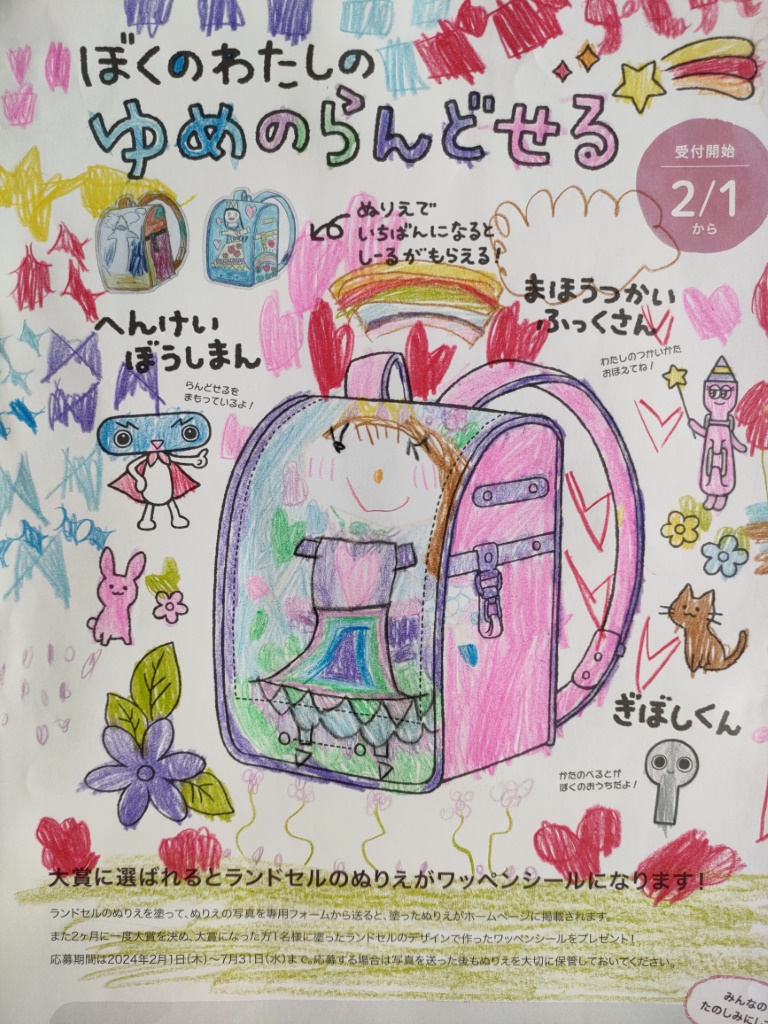 ぼくのわたしの
ゆめのらんどせる
受付開始
2/1
から
ぬりえで
いちばんになると
しーるがもらえる!
まほうつかい
ふっくさん
わたしのつかいかた
おぼえてね!
へんけい
ぼうしまん
らんどせるを
まもっているよ!
ぎぼしくん
かたのべるとが
ぼくのおうちだよ!
大賞に選ばれるとランドセルのぬりえがワッペンシールになります!
ランドセルのぬりえを塗って、ぬりえの写真を専用フォームから送ると、塗ったぬりえがホームページに掲載されます。
また2ヶ月に一度大賞を決め、大賞になった方1名様に塗ったランドセルのデザインで作ったワッペンシールをプレゼント!
応募期間は2024年2月1日(木)～7月31日(水)まで。応募する場合は写真を送った後もぬりえを大切に保管しておいてください。
みんなの
たのしみにし